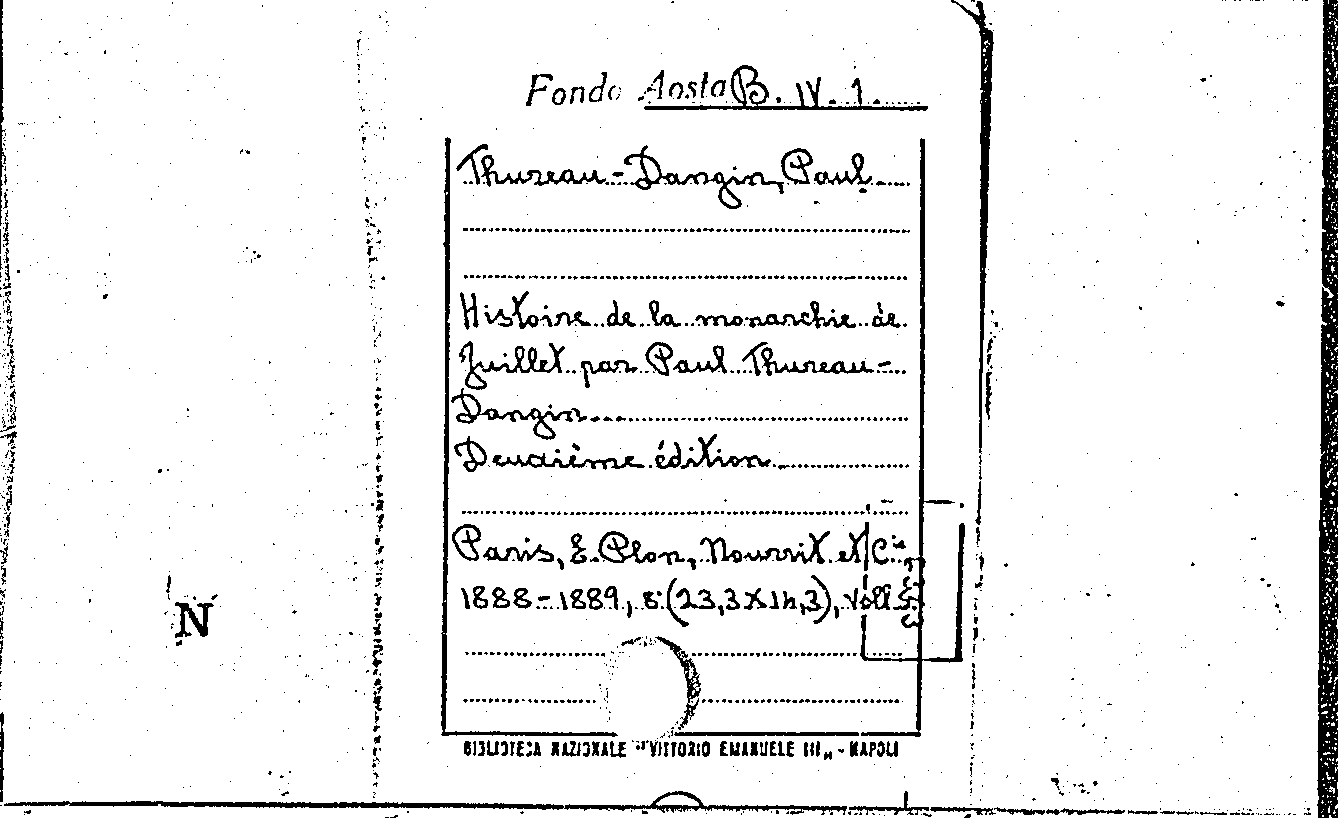 Fondo Aosta B. IV. 1.
Thureau-Dangin, Paul
Histoire de la monarchie de
Juillet par Paul Thureau-
Dangin
Deuxième édition
Paris, E. Plon, Nourrit et Cie
1888-1889, 8° (23,3X14,3), voll.
N
BIBLIOTECA NAZIONALE "VITTORIO EMANUELE III" - NAPOLI